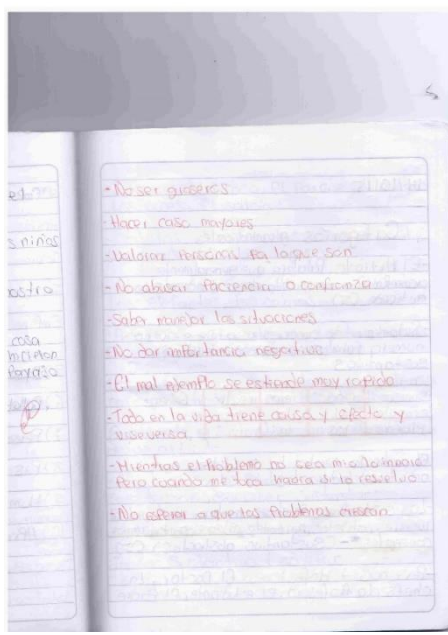 el
s niños
ostro
cosa
hicieron
Payaso
- No ser groseros
- Hacer caso mayores
- Valorar Personas Por lo que son
- No abusar Paciencia o confianza
- Saber manejar las situaciones
- No dar importancia negativo
- El mal ejemplo se estiende muy rapido
- Todo en la vida tiene causa y efecto y
viseversa
- Mientras el Problema no ceia mio lo ignoro
Pero cuando me toca haora si lo resuelvo
- No esperar a que los Problemas crescan